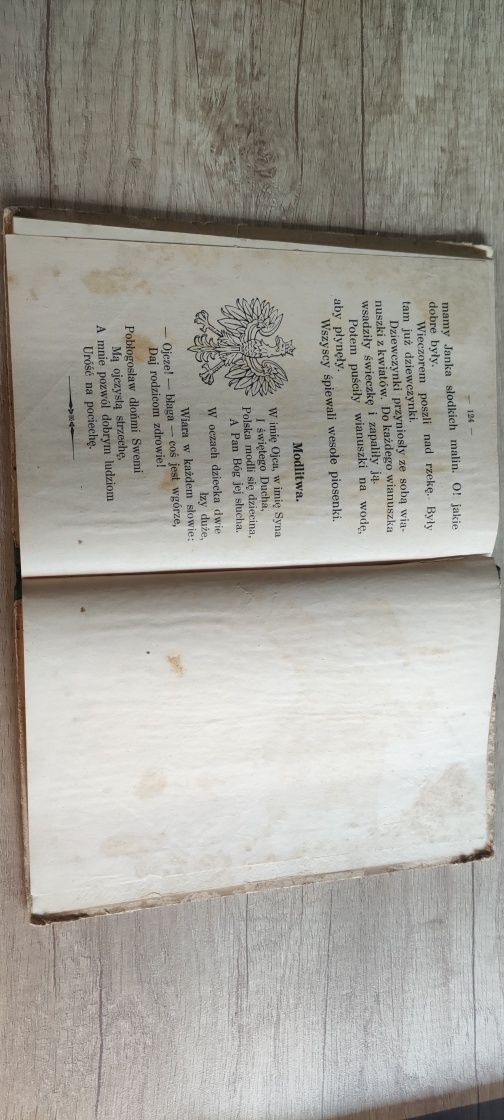 — 124 —
mamy Janka słodkich malin. O! jakie
dobre były.
Wieczorem poszli nad rzekę. Były
tam już dziewczynki.
Dziewczynki przyniosły ze sobą wia-
nuszki z kwiatów. Do każdego wianuszka
wsadziły świeczkę i zapaliły ją.
Potem puściły wianuszki na wodę,
aby płynęły.
Wszyscy śpiewali wesołe piosenki.
Modlitwa.
W imię Ojca, w imię Syna
I świętego Ducha,
Polska modli się dziecina,
A Pan Bóg jej słucha.
W oczach dziecka dwie
łzy duże,
Wiara w każdem słowie:
— Ojcze! — błaga — coś jest wgórze,
Daj rodzicom zdrowie!
Pobłogosław dłońmi Swemi
Mą ojczystą strzechę,
A mnie pozwól dobrym ludziom
Uróść na pociechę.